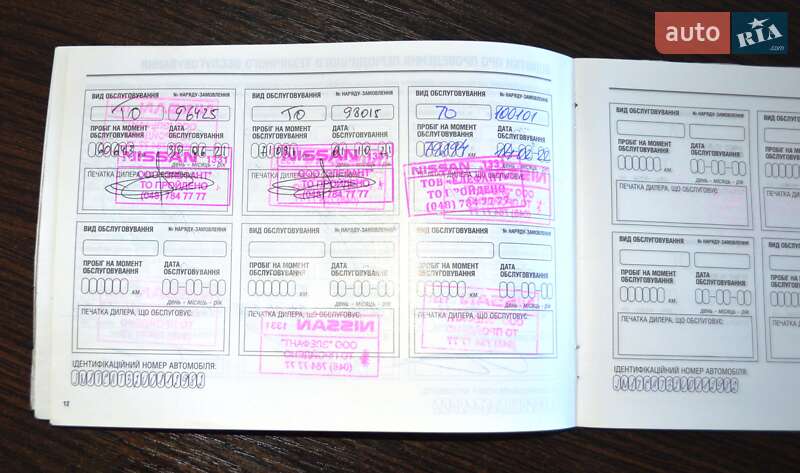 auto RIA .com
ВИД ОБСЛУГОВУВАННЯ № НАРЯДУ-ЗАМОВЛЕННЯ
ТО 96425
ПРОБІГ НА МОМЕНТ ОБСЛУГОВУВАННЯ ДАТА ОБСЛУГОВУВАННЯ
КМ. 30-06-21
ДЕНЬ - МІСЯЦЬ - РІК
ПЕЧАТКА ДИЛЕРА, ЩО ОБСЛУГОВУЄ:
NISSAN 1331
ООО "ЭЛЕФАНТ"
ТО ПРОЙДЕНО
(048) 784 77 77
ВИД ОБСЛУГОВУВАННЯ № НАРЯДУ-ЗАМОВЛЕННЯ
ТО 98015
ПРОБІГ НА МОМЕНТ ОБСЛУГОВУВАННЯ ДАТА ОБСЛУГОВУВАННЯ
ПЕЧАТКА ДИЛЕРА, ЩО ОБСЛУГОВУЄ:
NISSAN 1331
ООО "ЭЛЕФАНТ"
ТО ПРОЙДЕНО
(048) 784 77 77
ВИД ОБСЛУГОВУВАННЯ № НАРЯДУ-ЗАМОВЛЕННЯ
ТО 100101
ПРОБІГ НА МОМЕНТ ОБСЛУГОВУВАННЯ ДАТА ОБСЛУГОВУВАННЯ
NISSAN 1331
ТО ПРОЙДЕНО
(048) 784 77 77
ВИД ОБСЛУГОВУВАННЯ № НАРЯДУ-ЗАМОВЛЕННЯ
ПРОБІГ НА МОМЕНТ ОБСЛУГОВУВАННЯ ДАТА ОБСЛУГОВУВАННЯ
000000 КМ. 00-00-00
ДЕНЬ - МІСЯЦЬ - РІК
ПЕЧАТКА ДИЛЕРА, ЩО ОБСЛУГОВУЄ:
ВИД ОБСЛУГОВУВАННЯ № НАРЯДУ-ЗАМОВЛЕННЯ
ПРОБІГ НА МОМЕНТ ОБСЛУГОВУВАННЯ ДАТА ОБСЛУГОВУВАННЯ
000000 КМ. 00-00-00
ДЕНЬ - МІСЯЦЬ - РІК
ПЕЧАТКА ДИЛЕРА, ЩО ОБСЛУГОВУЄ:
NISSAN
1331
ООО "ЭЛЕФАНТ"
ТО ПРОЙДЕНО
(048) 784 77 77
ВИД ОБСЛУГОВУВАННЯ № НАРЯДУ-ЗАМОВЛЕННЯ
ПРОБІГ НА МОМЕНТ ОБСЛУГОВУВАННЯ ДАТА ОБСЛУГОВУВАННЯ
000000 КМ. 00-00-00
ДЕНЬ - МІСЯЦЬ - РІК
ПЕЧАТКА ДИЛЕРА, ЩО ОБСЛУГОВУЄ:
ІДЕНТИФІКАЦІЙНИЙ НОМЕР АВТОМОБІЛЯ:
12
ВИД ОБСЛУГОВУВАННЯ № НАРЯДУ-ЗАМОВЛЕННЯ
ПРОБІГ НА МОМЕНТ ОБСЛУГОВУВАННЯ ДАТА ОБСЛУГОВУВАННЯ
000000 КМ. 00-00-00
ДЕНЬ - МІСЯЦЬ - РІК
ПЕЧАТКА ДИЛЕРА, ЩО ОБСЛУГОВУЄ:
ВИД ОБСЛУГОВУВАННЯ № НАРЯДУ-ЗАМОВЛЕННЯ
ПРОБІГ НА МОМЕНТ ОБСЛУГОВУВАННЯ ДАТА ОБСЛУГОВУВАННЯ
000000 КМ. 00-00-00
ДЕНЬ - МІСЯЦЬ - РІК
ПЕЧАТКА ДИЛЕРА, ЩО ОБСЛУГОВУЄ:
ІДЕНТИФІКАЦІЙНИЙ НОМЕР АВТОМОБІЛЯ: